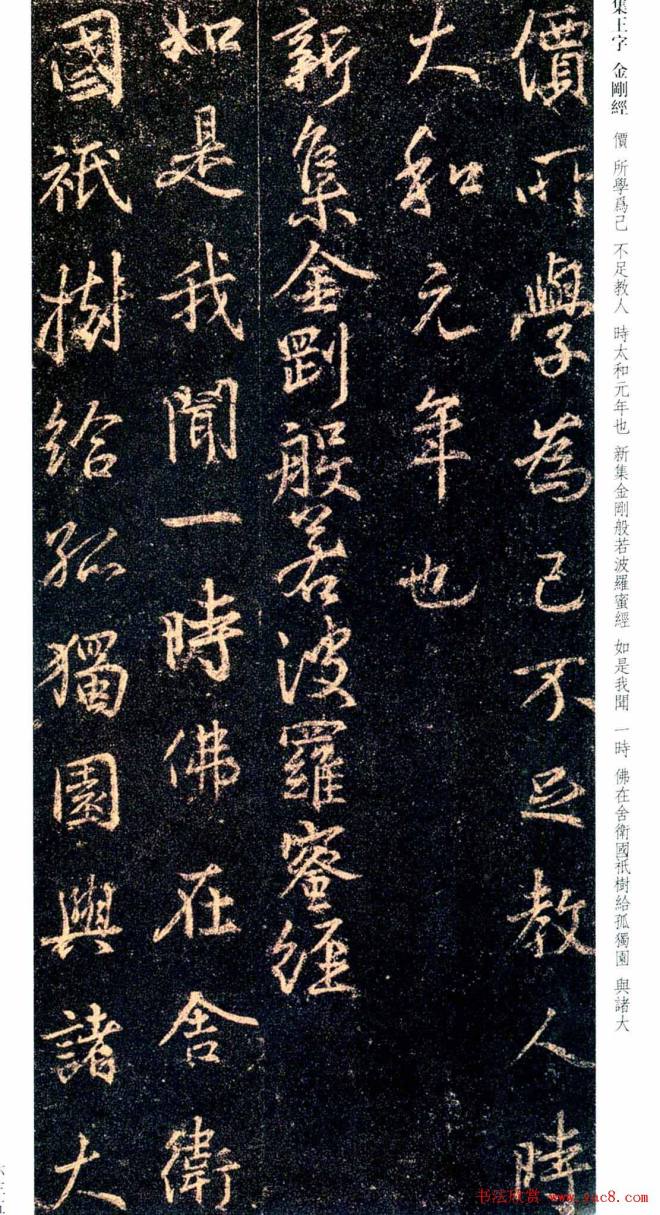 集王字 金剛經 價 所學爲己 不足教人 時太和元年也 新集金剛般若波羅蜜經 如是我聞 一時 佛在舍衛國祇樹給孤獨園 與諸大
價所學為己不足教人時
大和元年也
新集金剛般若波羅蜜經
如是我聞一時佛在舍衛
國祇樹給孤獨園與諸大
书法欣赏 www.yac8.com